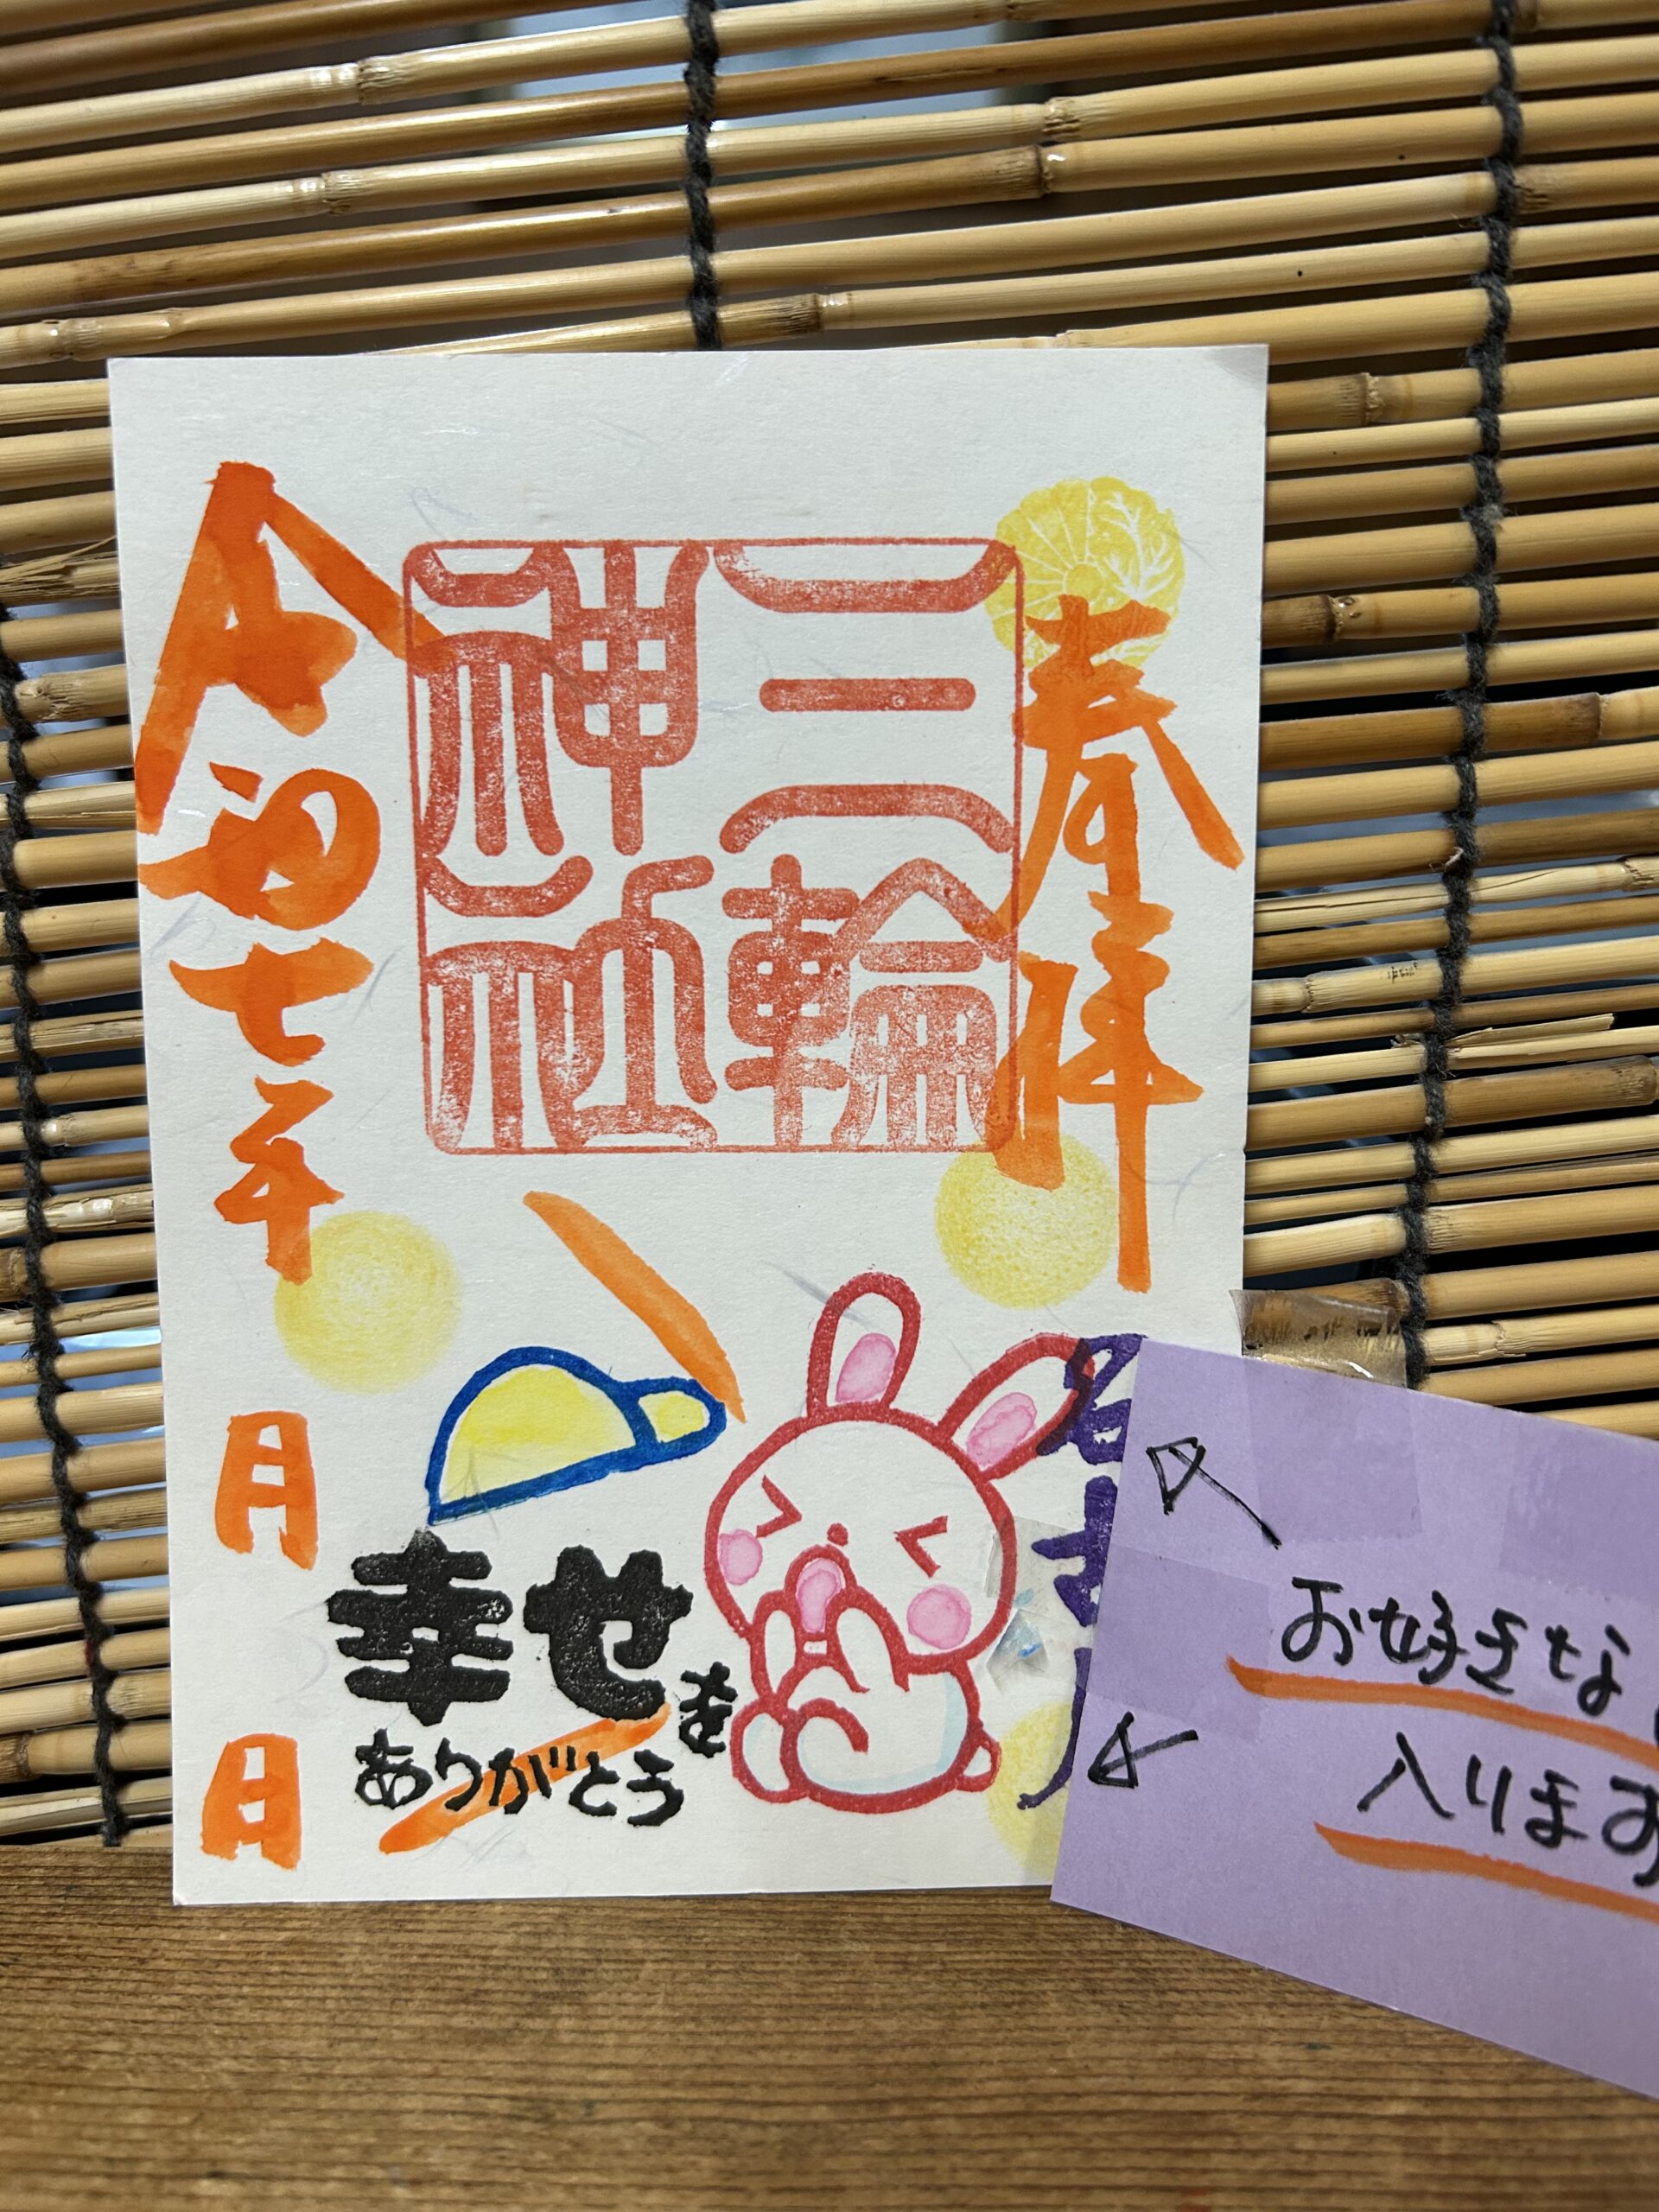 奉拝
三輪
神社
令和七年
月
日
幸せを
ありがとう
お好きな
入ります